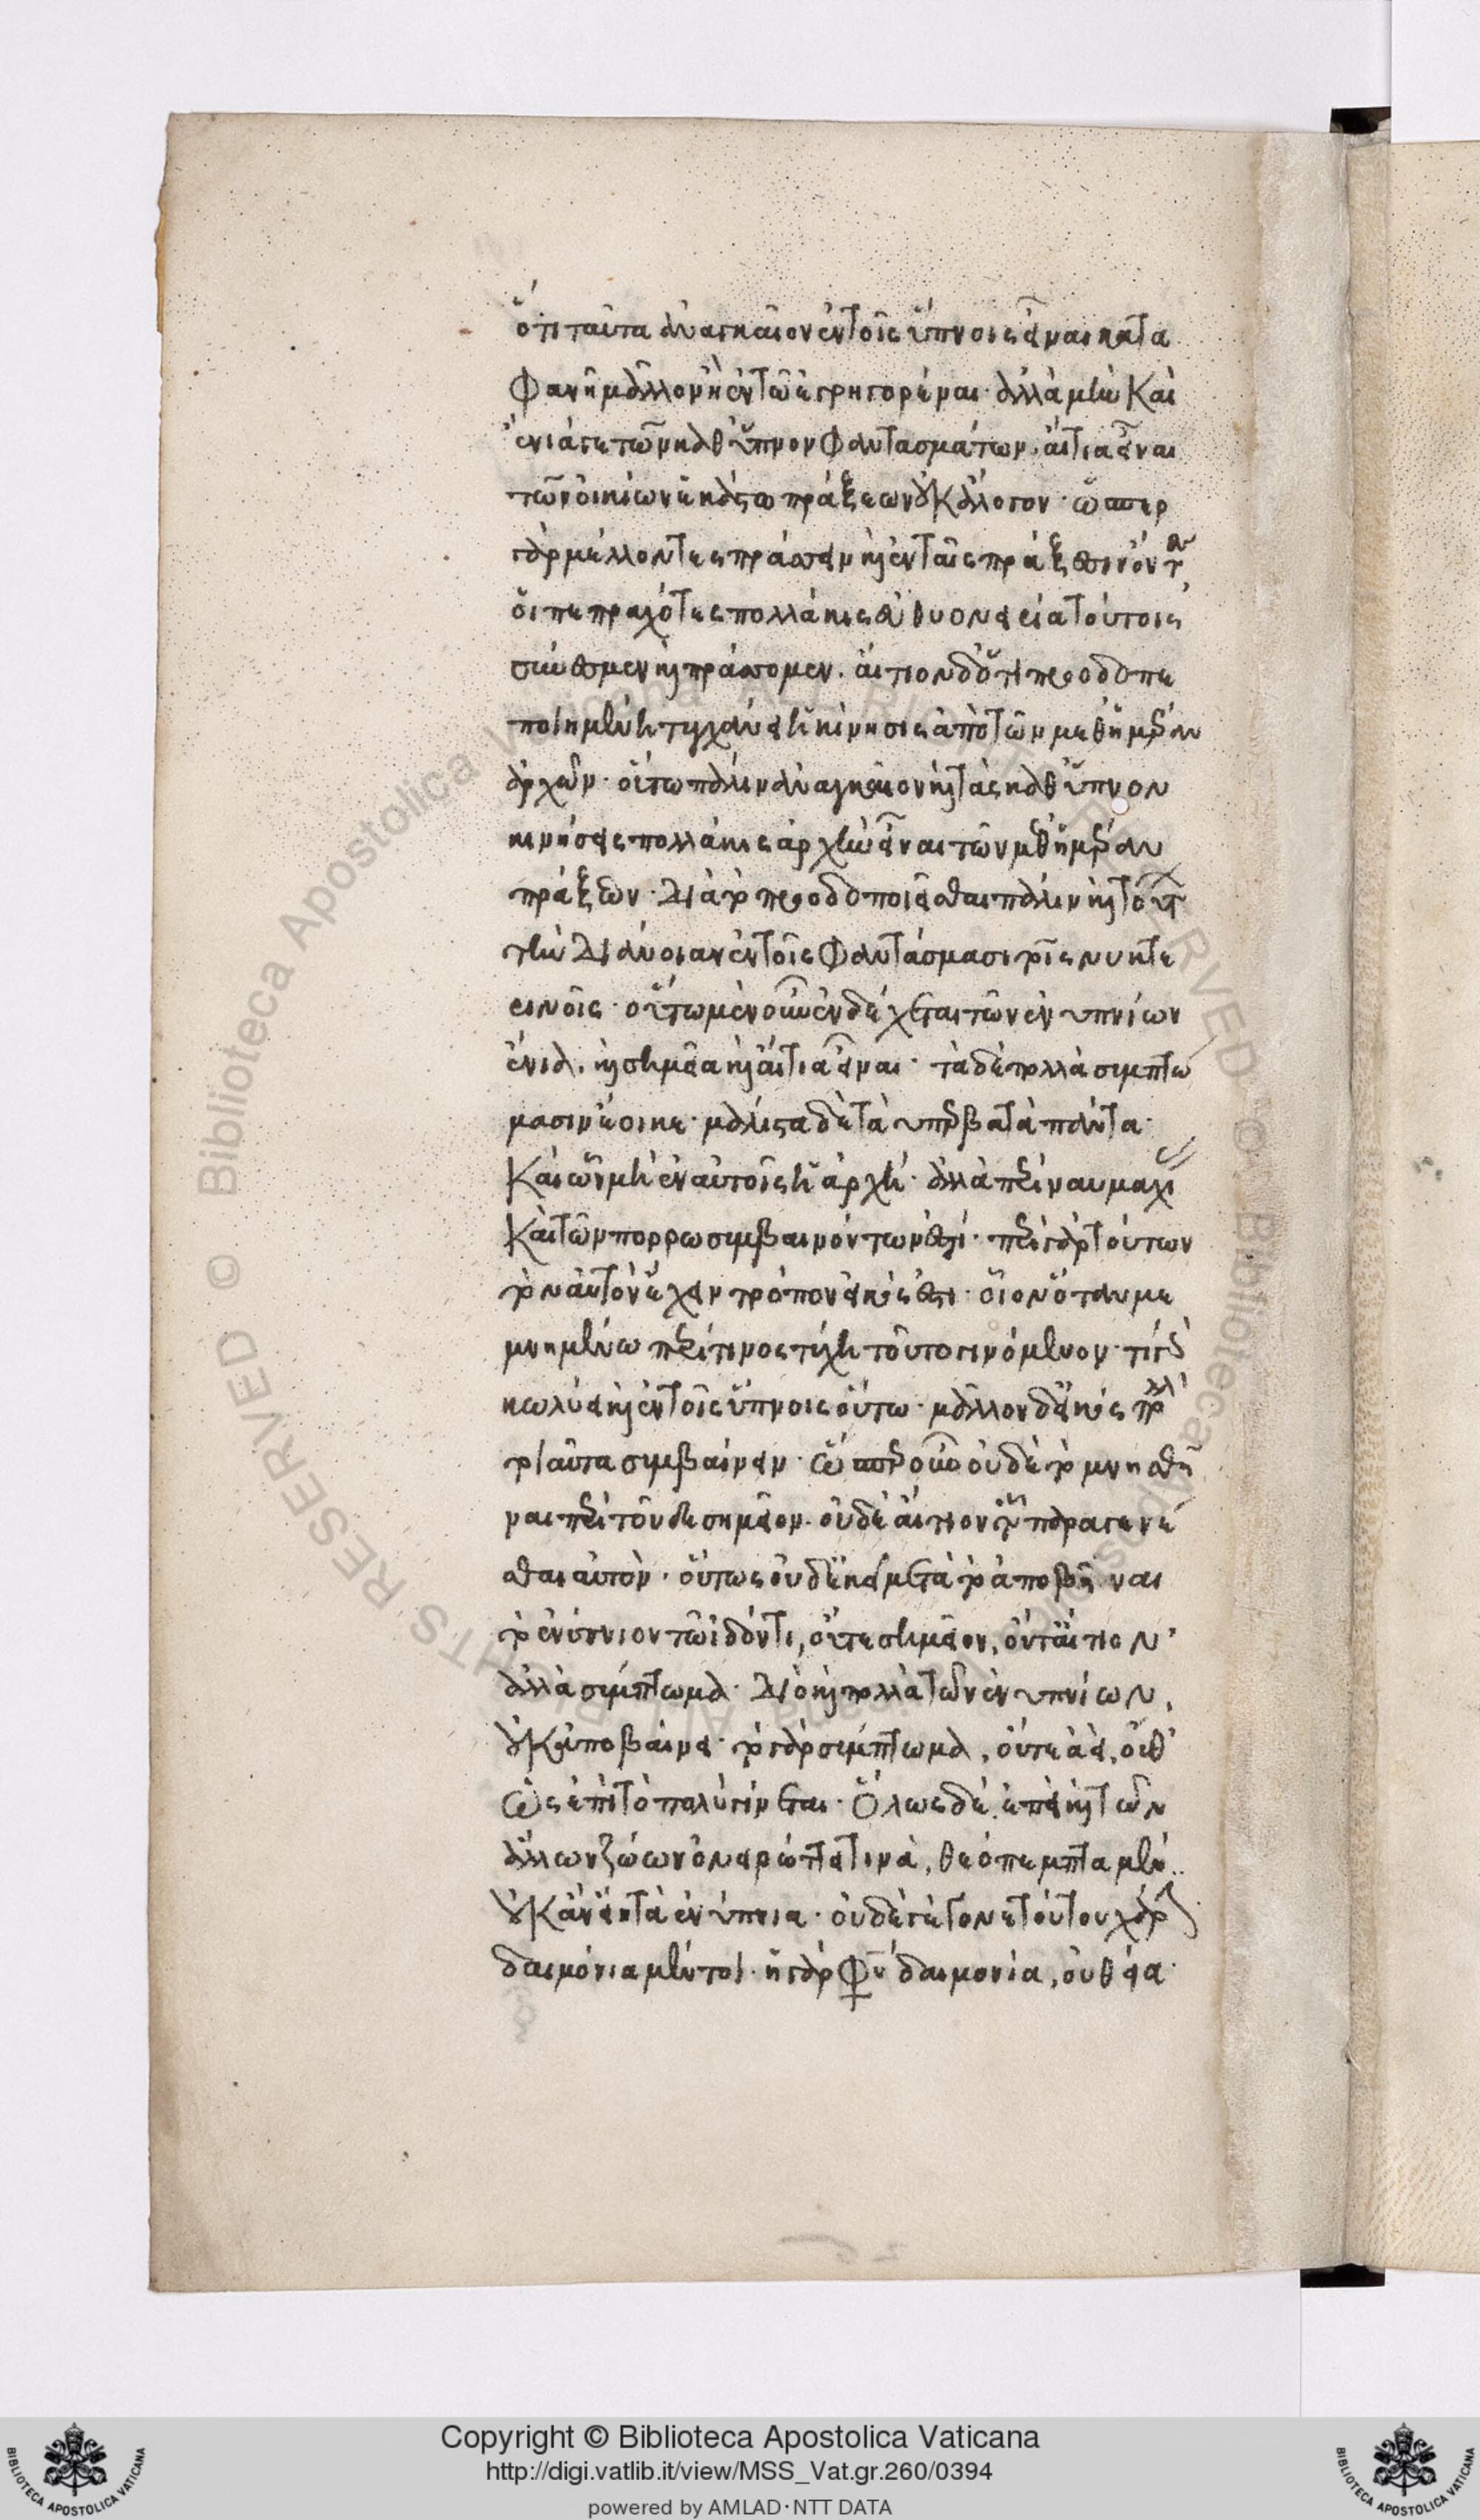 ὅτι ταῦτα ἀναγκαῖον ἐν τοῖς ὕπνοις εἶναι κατα
φανῆ μᾶλλον ἢ ἐν τῶ ἐγρηγορέναι· ἀλλὰ μὴν καὶ
ἔνιά γε τῶν καθ ὕπνον φαντασμάτων αἴτια εἶναι
τῶν οἰκείων ἑκάστω πράξεων οὐκ ἄλογον· ὥσπερ
γὰρ μέλλοντες πράττειν καὶ ἐν ταῖς πράξεσιν ὄντες
οἱ πεπραχότες πολλάκις εὐθυονειρία τούτοις
σύνεσμεν καὶ πράττομεν. αἴτιον δ ὅτι προοδοπε
ποιημένη τυγχάνει ἡ κίνησις ἀπὸ τῶν μεθ ἡμέραν
ἀρχῶν· οὕτω πάλιν ἀναγκαῖον καὶ τὰς καθ ὕπνον
κινήσεις πολλάκις ἀρχὴν εἶναι τῶν μεθ ἡμέραν
πράξεων· διὰ τὸ προοδοποιεῖσθαι πάλιν καὶ τούτων
τὴν διάνοιαν ἐν τοῖς φαντάσμασι τοῖς νυκτε
ρινοῖς· οὕτω μὲν οὖν ἐνδέχεται τῶν ἐνυπνίων
ἔνια καὶ σημεῖα καὶ αἴτια εἶναι· τὰ δὲ πολλὰ συμπτώ
μασιν ἔοικε· μάλιστα δὲ τὰ ὑπερβατὰ πάντα·
καὶ ὧν μὴ ἐν αὐτοῖς ἡ ἀρχή· ἀλλὰ περὶ ναυμαχίας
καὶ τῶν πόρρω συμβαινόντων ἐστί· περὶ γὰρ τούτων
τὸν αὐτὸν ἔχειν τρόπον εἰκός ἐστι· οἷον ὅταν με
μνημένω περί τινος τύχη τοῦτο γινόμενον· τί γὰρ
κωλύει καὶ ἐν τοῖς ὕπνοις οὕτω· μᾶλλον δ εἰκὸς πολλὰ
τοιαῦτα συμβαίνειν· ὥσπερ οὖν οὐδὲ τὸ μνησθῆ
ναι περὶ τοῦδε σημεῖον· οὐδὲ αἴτιον τοῦ παραγενέ
σθαι αὐτόν· οὕτως οὐδ ἐκεῖ μετὰ τὸ ἀποβῆναι
τὸ ἐνύπνιον τῶ ἰδόντι, οὔτε σημεῖον, οὔτ αἴτιον
ἀλλὰ σύμπτωμα· διὸ καὶ πολλὰ τῶν ἐνυπνίων,
οὐκ ἀποβαίνει· τὸ γὰρ σύμπτωμα, οὔτε ἀεὶ, οὔθ
ὡς ἐπὶ τὸ πολὺ γίνεται· ὅλως δὲ ἐπεὶ καὶ τῶν
ἄλλων ζώων ὀνειρώττει τινὰ, θεόπεμπτα μὲν
οὐκ ἂν εἴη τὰ ἐνύπνια· οὐδὲ γέγονε τούτου χάριν
δαιμόνια μέντοι· ἡ γὰρ φύσις δαιμονία, οὐ θεία·
Copyright © Biblioteca Apostolica Vaticana
http://digi.vatlib.it/view/MSS_Vat.gr.260/0394
powered by AMLAD·NTT DATA